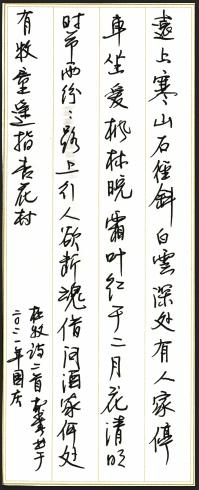 遠上寒山石径斜白雲深处有人家停
車坐爱枫林晚霜叶红于二月花清明
时节雨纷〻路上引人欲断魂借问酒家何处
有牧童遥指杏花村
杜牧诗二首
二〇二一年国庆